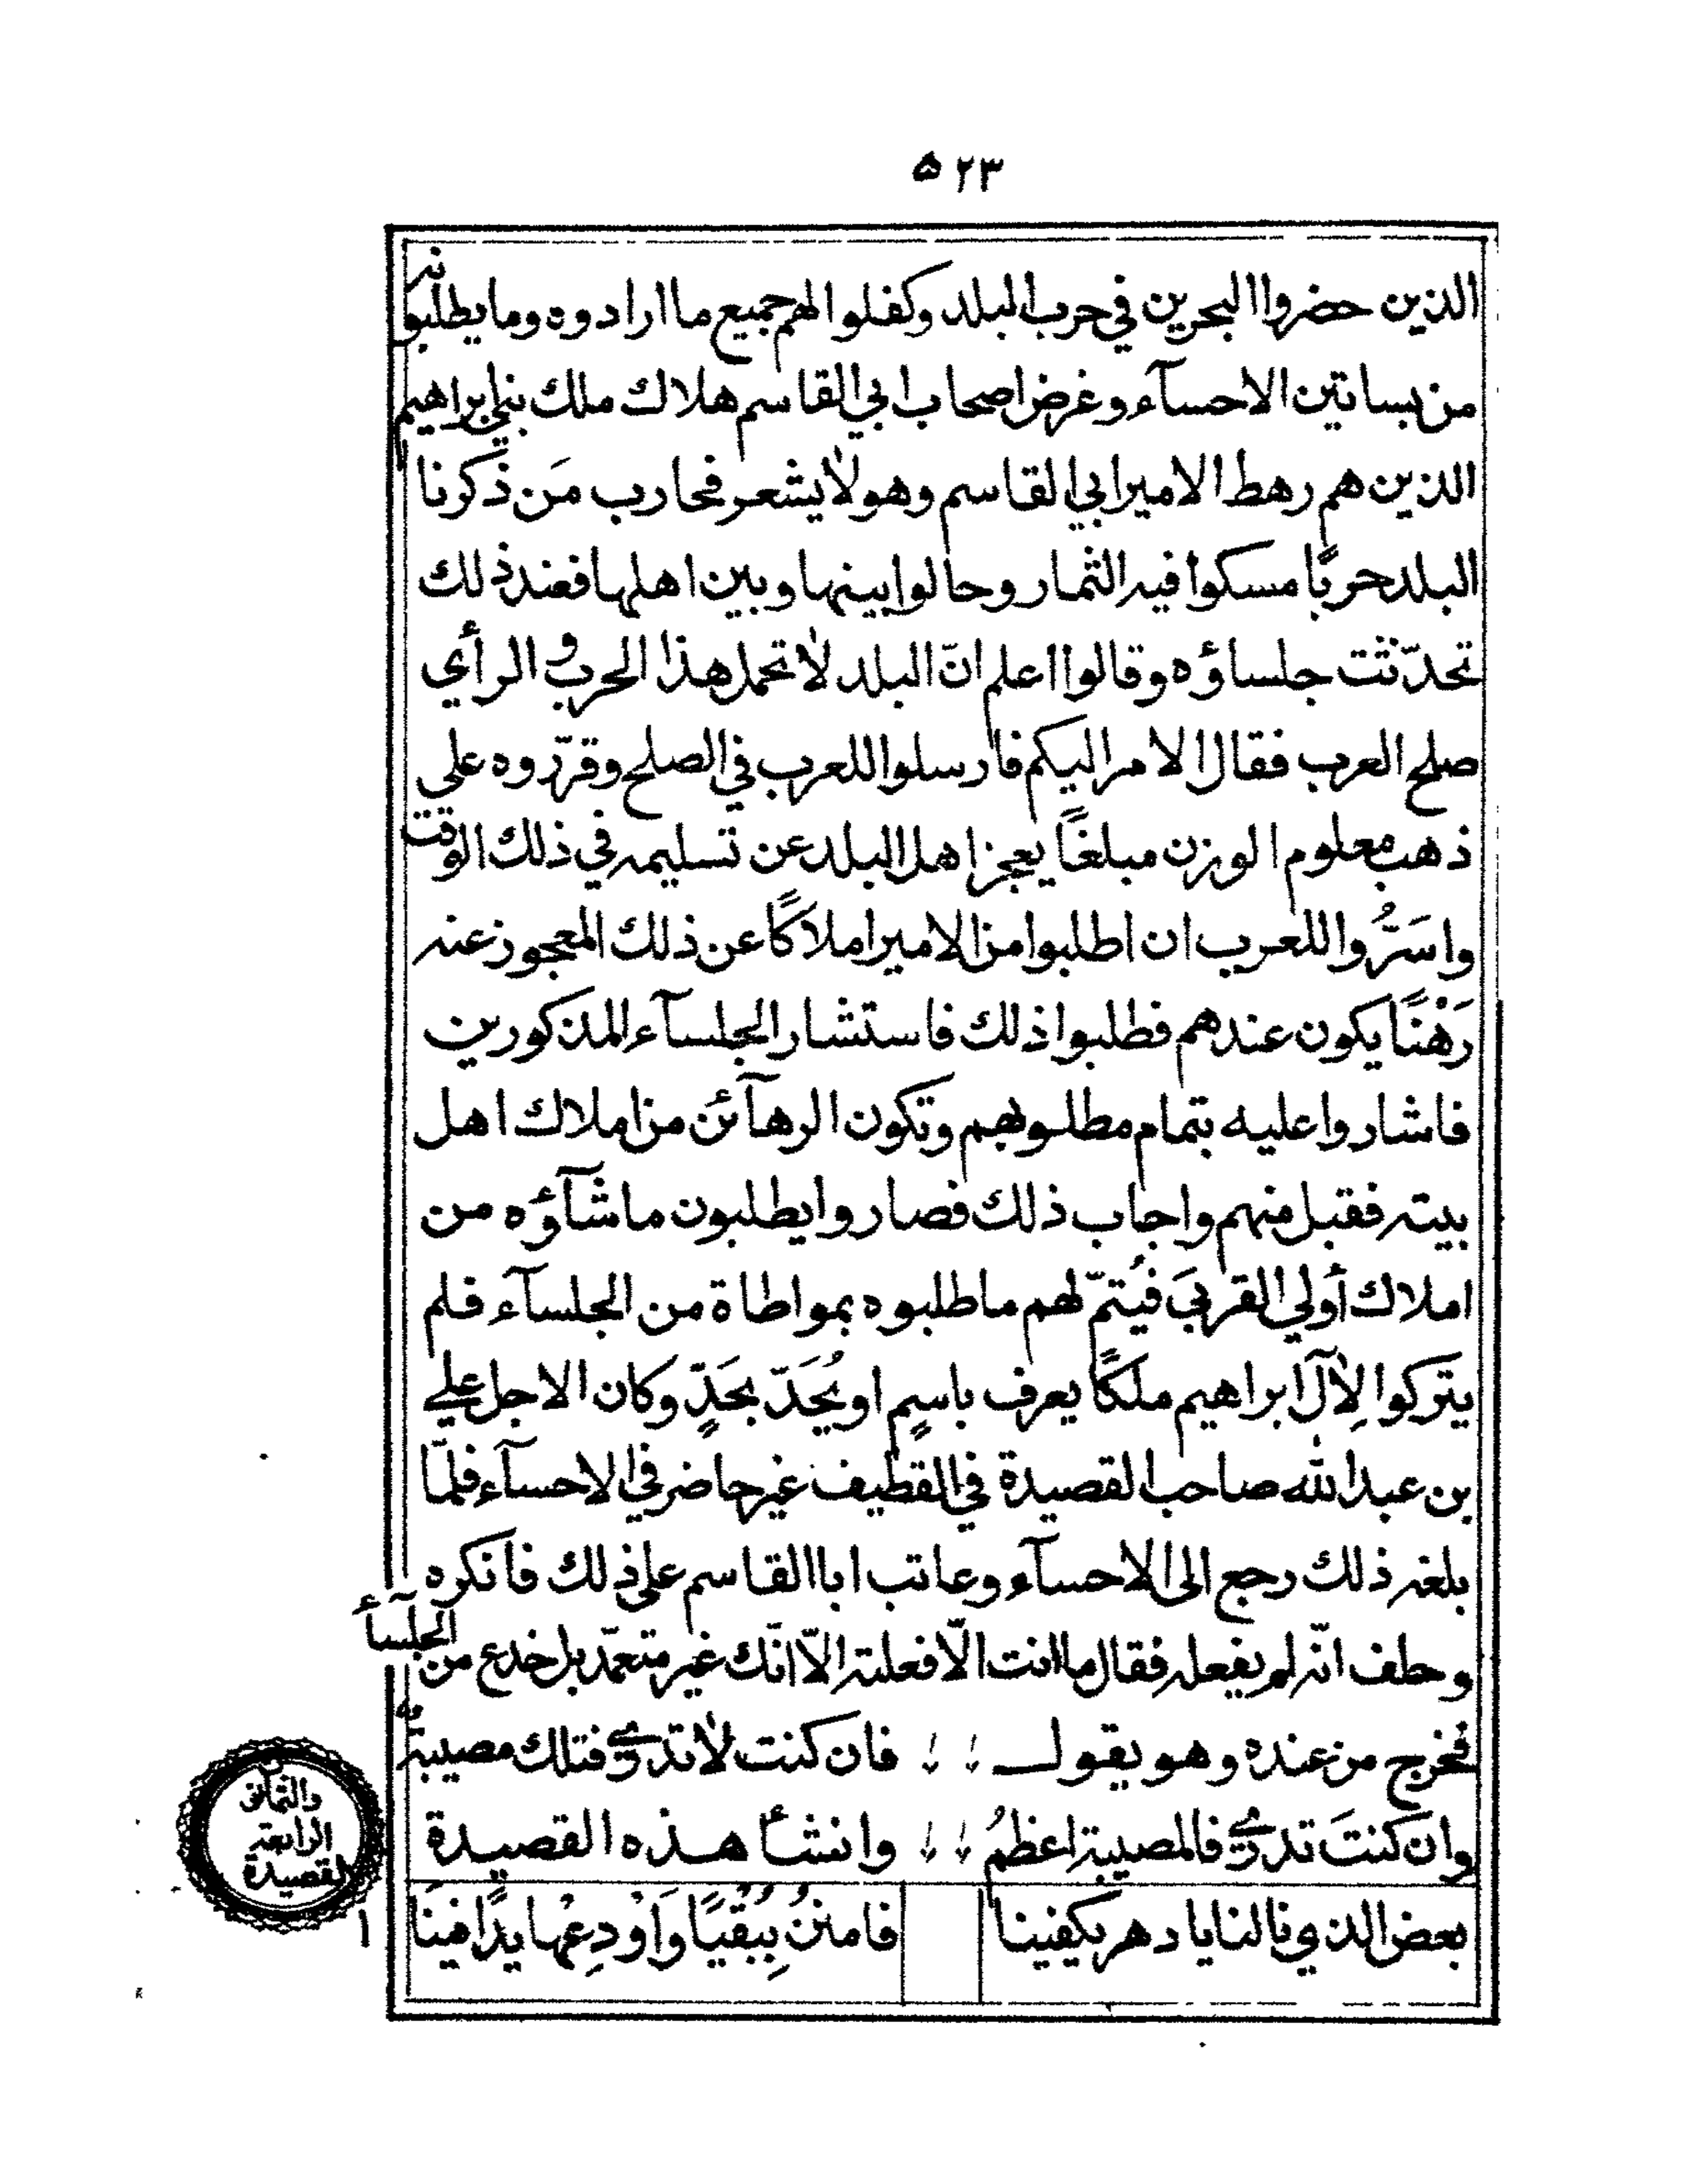 ٥٢٣
الذين حضروا البحرين في حرب البلد وكفلوا لهم جميع ما ارادوه وما يطلبونه
من بساتين الاحسآء وغرض اصحاب ابي القاسم هلاك ملك بني ابراهيم
الذين هم رهط الامير ابي القاسم وهو لا يشعر فحارب مَن ذكرنا
البلد حربًا مسكوا فيه الثمار وحالوا بينها وبين اهلها فعند ذلك
تحدّثت جلساؤه وقالوا اعلم انّ البلد لا تحمل هذا الحرب و الرأي
صلح العرب فقال الامر اليكم فارسلوا للعرب في الصلح وقرّروه على
ذهب معلوم الوزن مبلغًا يعجز اهل البلد عن تسليمه في ذلك الوقت
واسَرُّوا للعرب ان اطلبوا من الامير املاكًا عن ذلك المعجوز عنه
رَهْنًا يكون عندهم فطلبوا ذلك فاستشار الجلسآء المذكورين
فاشاروا عليه بتمام مطلوبهم وتكون الرهآئن من املاك اهل
بيته فقبل منهم واجاب ذلك فصاروا يطلبون ما شآؤه من
املاك أولي القربَى فيُتمّ لهم ما طلبوه بمواطاة من الجلسآء فلم
يتركوا لِآل ابراهيم ملكًا يعرف باسمٍ او يُحَدّ بحَدٍّ وكان الاجل علي
بن عبد الله صاحب القصيدة في القطيف غير حاضر في الاحسآء فلمّا
بلغه ذلك رجع الى الاحسآء وعاتب ابا القاسم على ذلك فانكره
وحلف انّه لم يفعله فقال ما انت الّا فعلته الّا انّك غير متعمّد بل خدع من الجلسآء
فخرج من عنده وهو يقول ؞ ؞ فان كنت لا تدري فتلك مصيبةٌ
وان كنتَ تدري فالمصيبة اعظمُ ؞ ؞ وانشأ هذه القصيدة
بعض الذي نالنا يا دهر يكفينا فامنُنْ بِبُقْيًا وَاَوْدِعْها يدًا فينَا
١
القصيدة
الرابعة
والثمانون